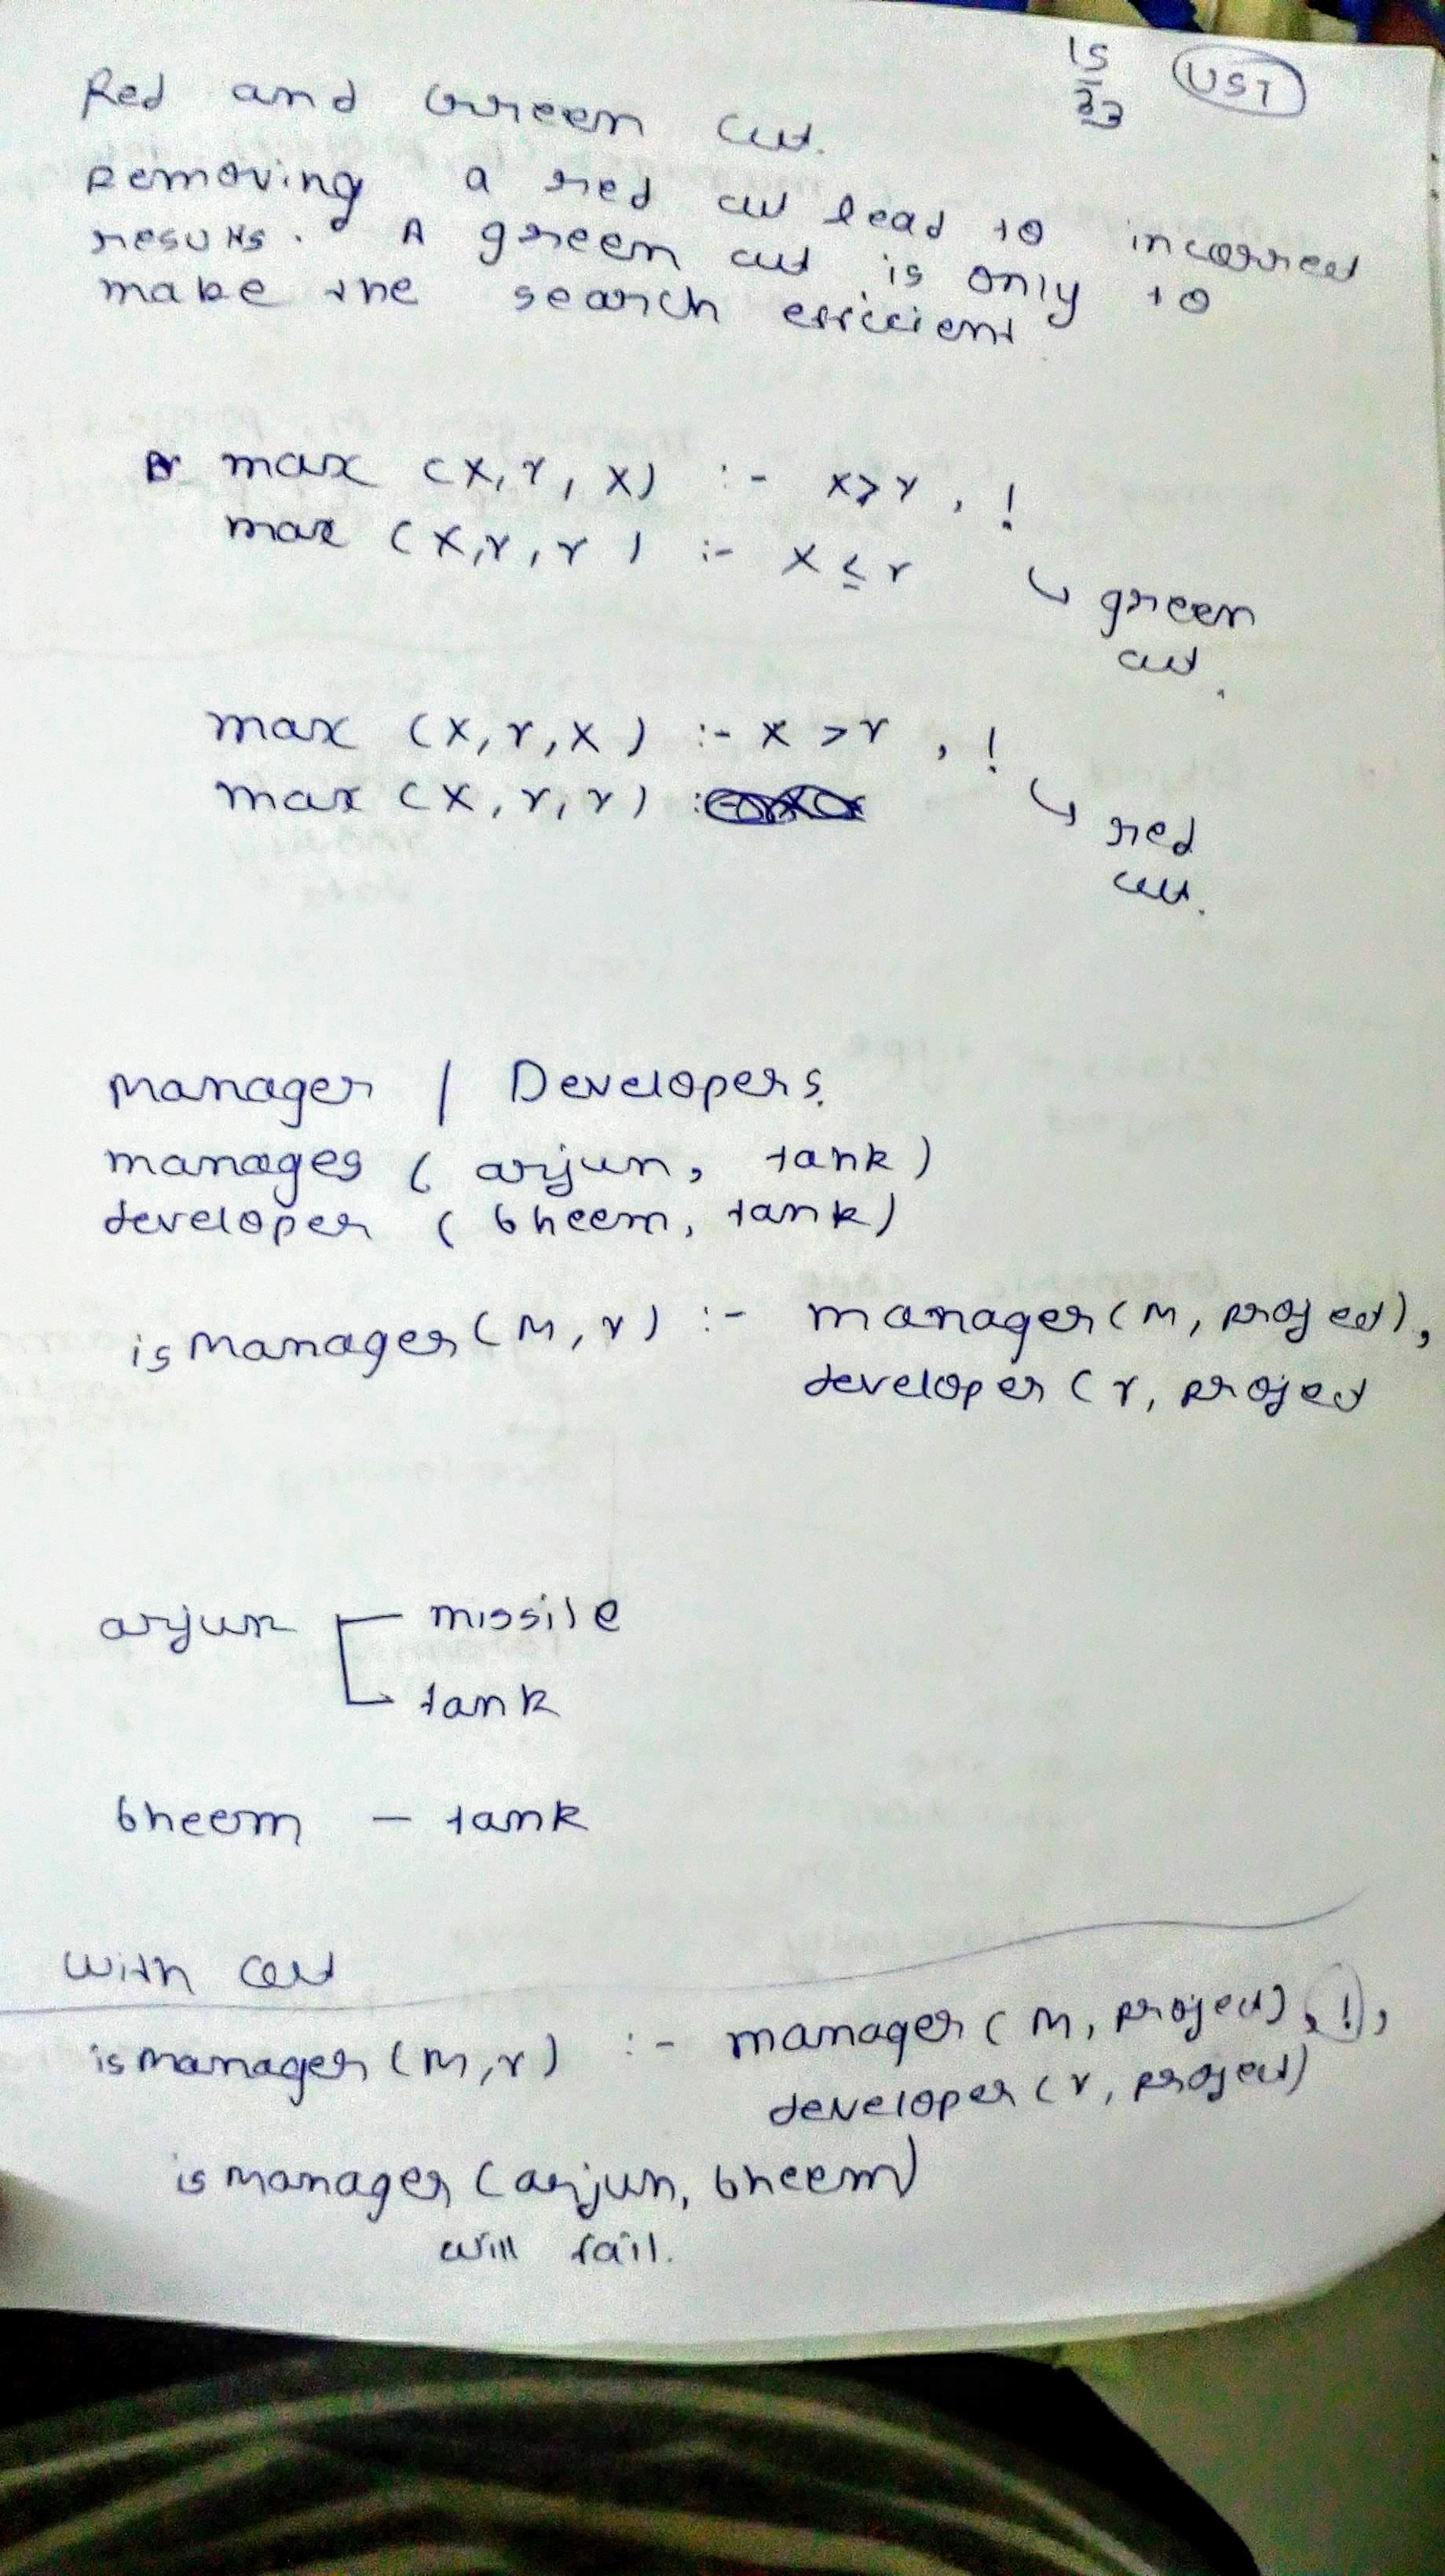 15
33 UST
Red and Green cut.
Removing a red cut lead to incorrect
results. A green cut is only to
make the search efficient
max (X, Y, X) :- X>Y , !
max (X,Y,Y) :- X ≤ Y
↳ green
cut.
max (X,Y,X) :- X >Y , !
max (X,Y,Y) :
↳ red
cut.
Manager / Developers.
manages (arjun, tank)
developer (bheem, tank)
is Manager (M,Y) :- manager (M, project),
developer (Y, project
arjun missile
tank
bheem - tank
With cut
is manager (M,Y) :- manager (M, project), !,
developer (Y, project)
is manager (arjun, bheem)
will fail.